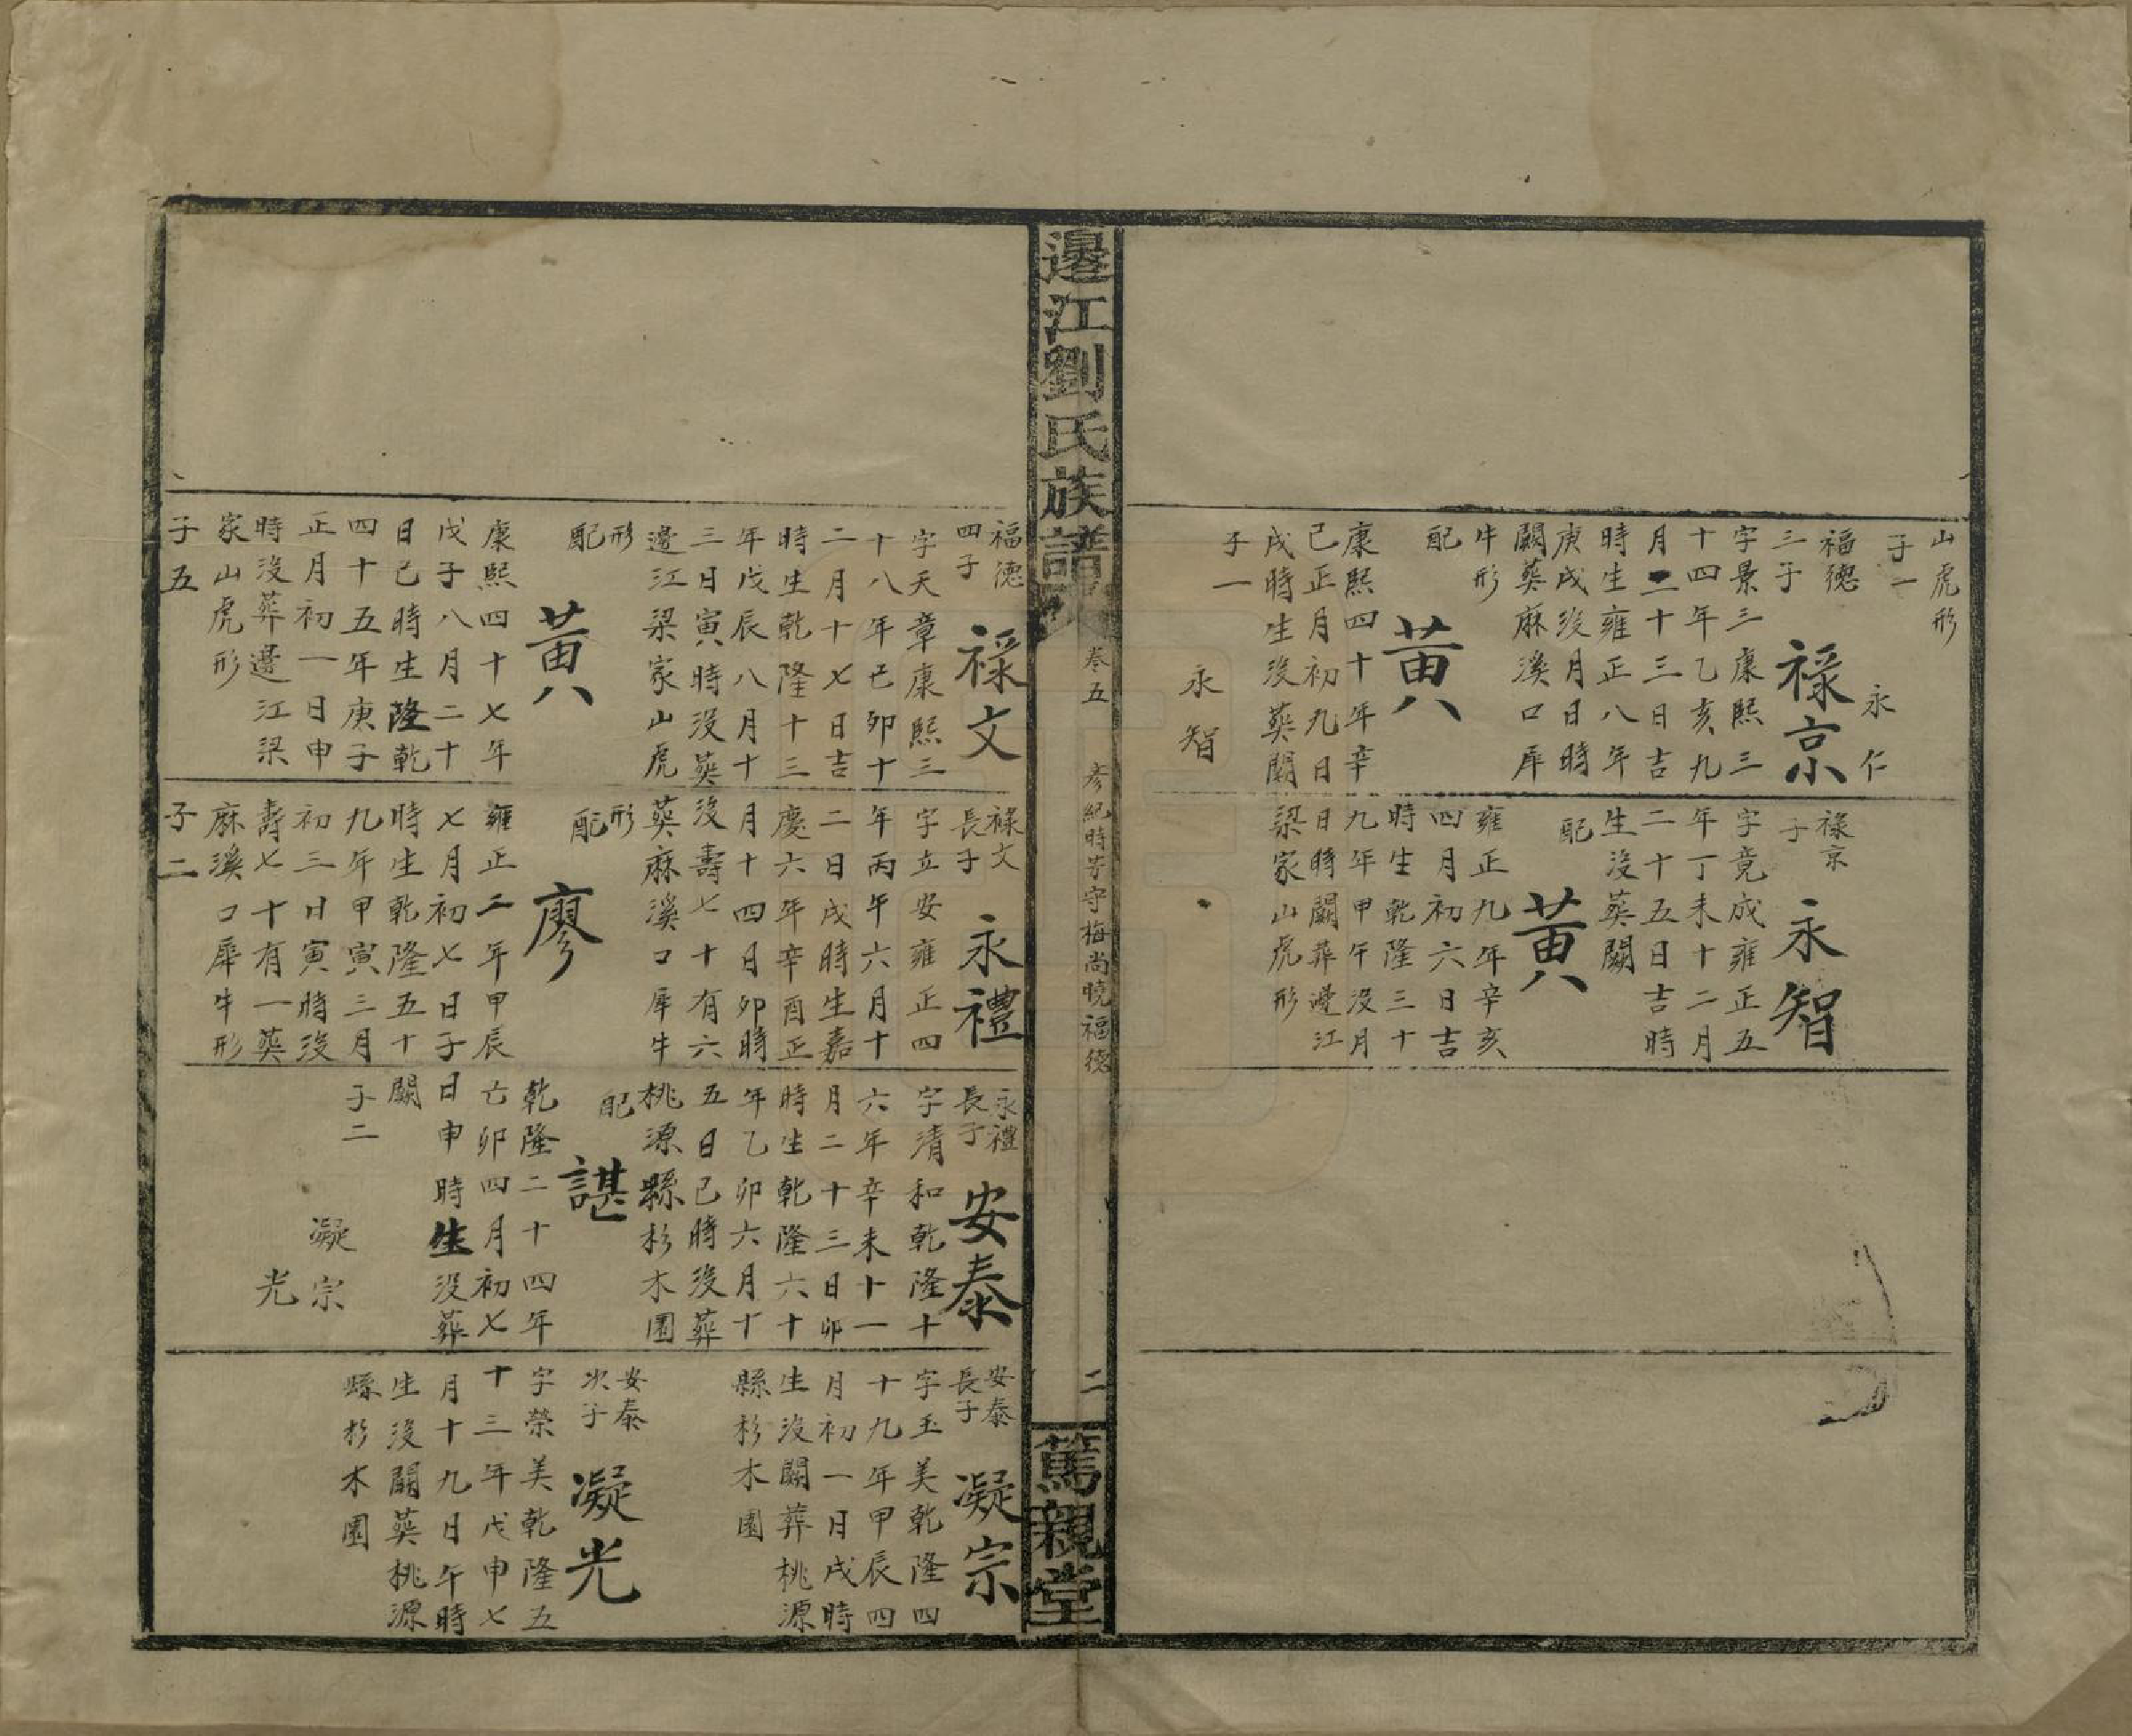 山虎形
子一
永仁
福德
三子
祿京
字景三康熙三
十四年乙亥九
月二十三日吉
時生雍正八年
庚戌沒月日時
闕葬麻溪口犀
牛形
配
黃
康熙四十年辛
巳正月初九日
戌時生沒葬闕
子一
永智
祿京
子
永智
字竟成雍正五
年丁未十二月
二十五日吉時
生沒葬闕
配
黃
雍正九年辛亥
四月初六日吉
時生乾隆三十
九年甲午沒月
日時闕葬邊江
梁家山虎形
邊江劉氏族譜
卷五
彥紀時芳守梅尚曉福德
二
篤親堂
福德
四子
祿文
字天章康熙三
十八年己卯十
二月十七日吉
時生乾隆十三
年戊辰八月十
三日寅時沒葬
邊江梁家山虎
形
配
黃
康熙四十七年
戊子八月二十
日巳時生隆乾
四十五年庚子
正月初一日申
時沒葬邊江梁
家山虎形
子五
祿文
長子
永禮
字立安雍正四
年丙午六月十
二日戌時生嘉
慶六年辛酉正
月十四日卯時
沒壽七十有六
葬麻溪口犀牛
形
配
廖
雍正二年甲辰
七月初七日子
時生乾隆五十
九年甲寅三月
初三日寅時沒
壽七十有一葬
麻溪口犀牛形
子二
永禮
長子
安泰
字清和乾隆十
六年辛未十一
月二十三日卯
時生乾隆六十
年乙卯六月十
五日巳時沒葬
桃源縣杉木園
配
諶
乾隆二十四年
亡卯四月初七
日申時生沒葬
闕
子二
凝宗
光
安泰
長子
凝宗
字玉美乾隆四
十九年甲辰四
月初一日戌時
生沒闕葬桃源
縣杉木園
安泰
次子
凝光
字榮美乾隆五
十三年戊申七
月十九日午時
生沒闕葬桃源
縣杉木園